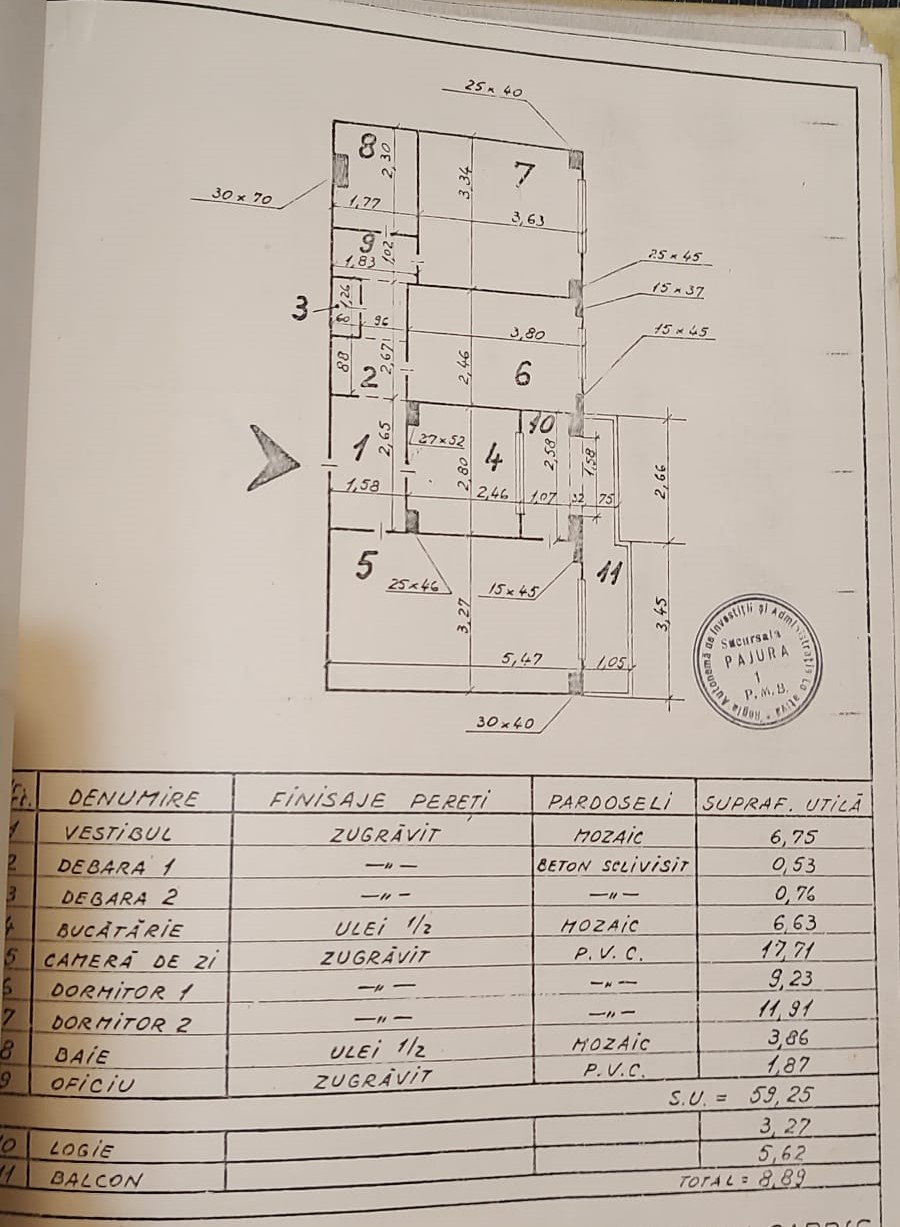 25 x 40
8
2,30
3,34
7
30 x 70
1,77
3,63
9
1,02
1,83
25 x 45
15 x 37
3
1,26
60
96
3,80
15 x 45
88
2
2,67
2,46
6
1
2,65
27 x 52
2,80
4
10
2,58
1,58
2,66
1,58
2,46
1,07
32
75
5
25 x 46
15 x 45
11
3,27
3,45
5,47
1,05
30 x 40
Regia Autonomă de Investiții și
Sucursala
PAJURA
1
P.M.B.
DENUMIRE FINISAJE PEREȚI PARDOSELI SUPRAF. UTILĂ
1 VESTIBUL ZUGRĂVIT MOZAIC 6,75
2 DEBARA 1 —〃— BETON SCLIVISIT 0,53
3 DEBARA 2 —〃— —〃— 0,76
4 BUCĂTĂRIE ULEI 1/2 MOZAIC 6,63
5 CAMERĂ DE ZI ZUGRĂVIT P.V.C. 17,71
6 DORMITOR 1 —〃— —〃— 9,23
7 DORMITOR 2 —〃— —〃— 11,91
8 BAIE ULEI 1/2 MOZAIC 3,86
9 OFICIU ZUGRĂVIT P.V.C. 1,87
S.U. = 59,25
10 LOGIE 3,27
11 BALCON 5,62
TOTAL = 8,89